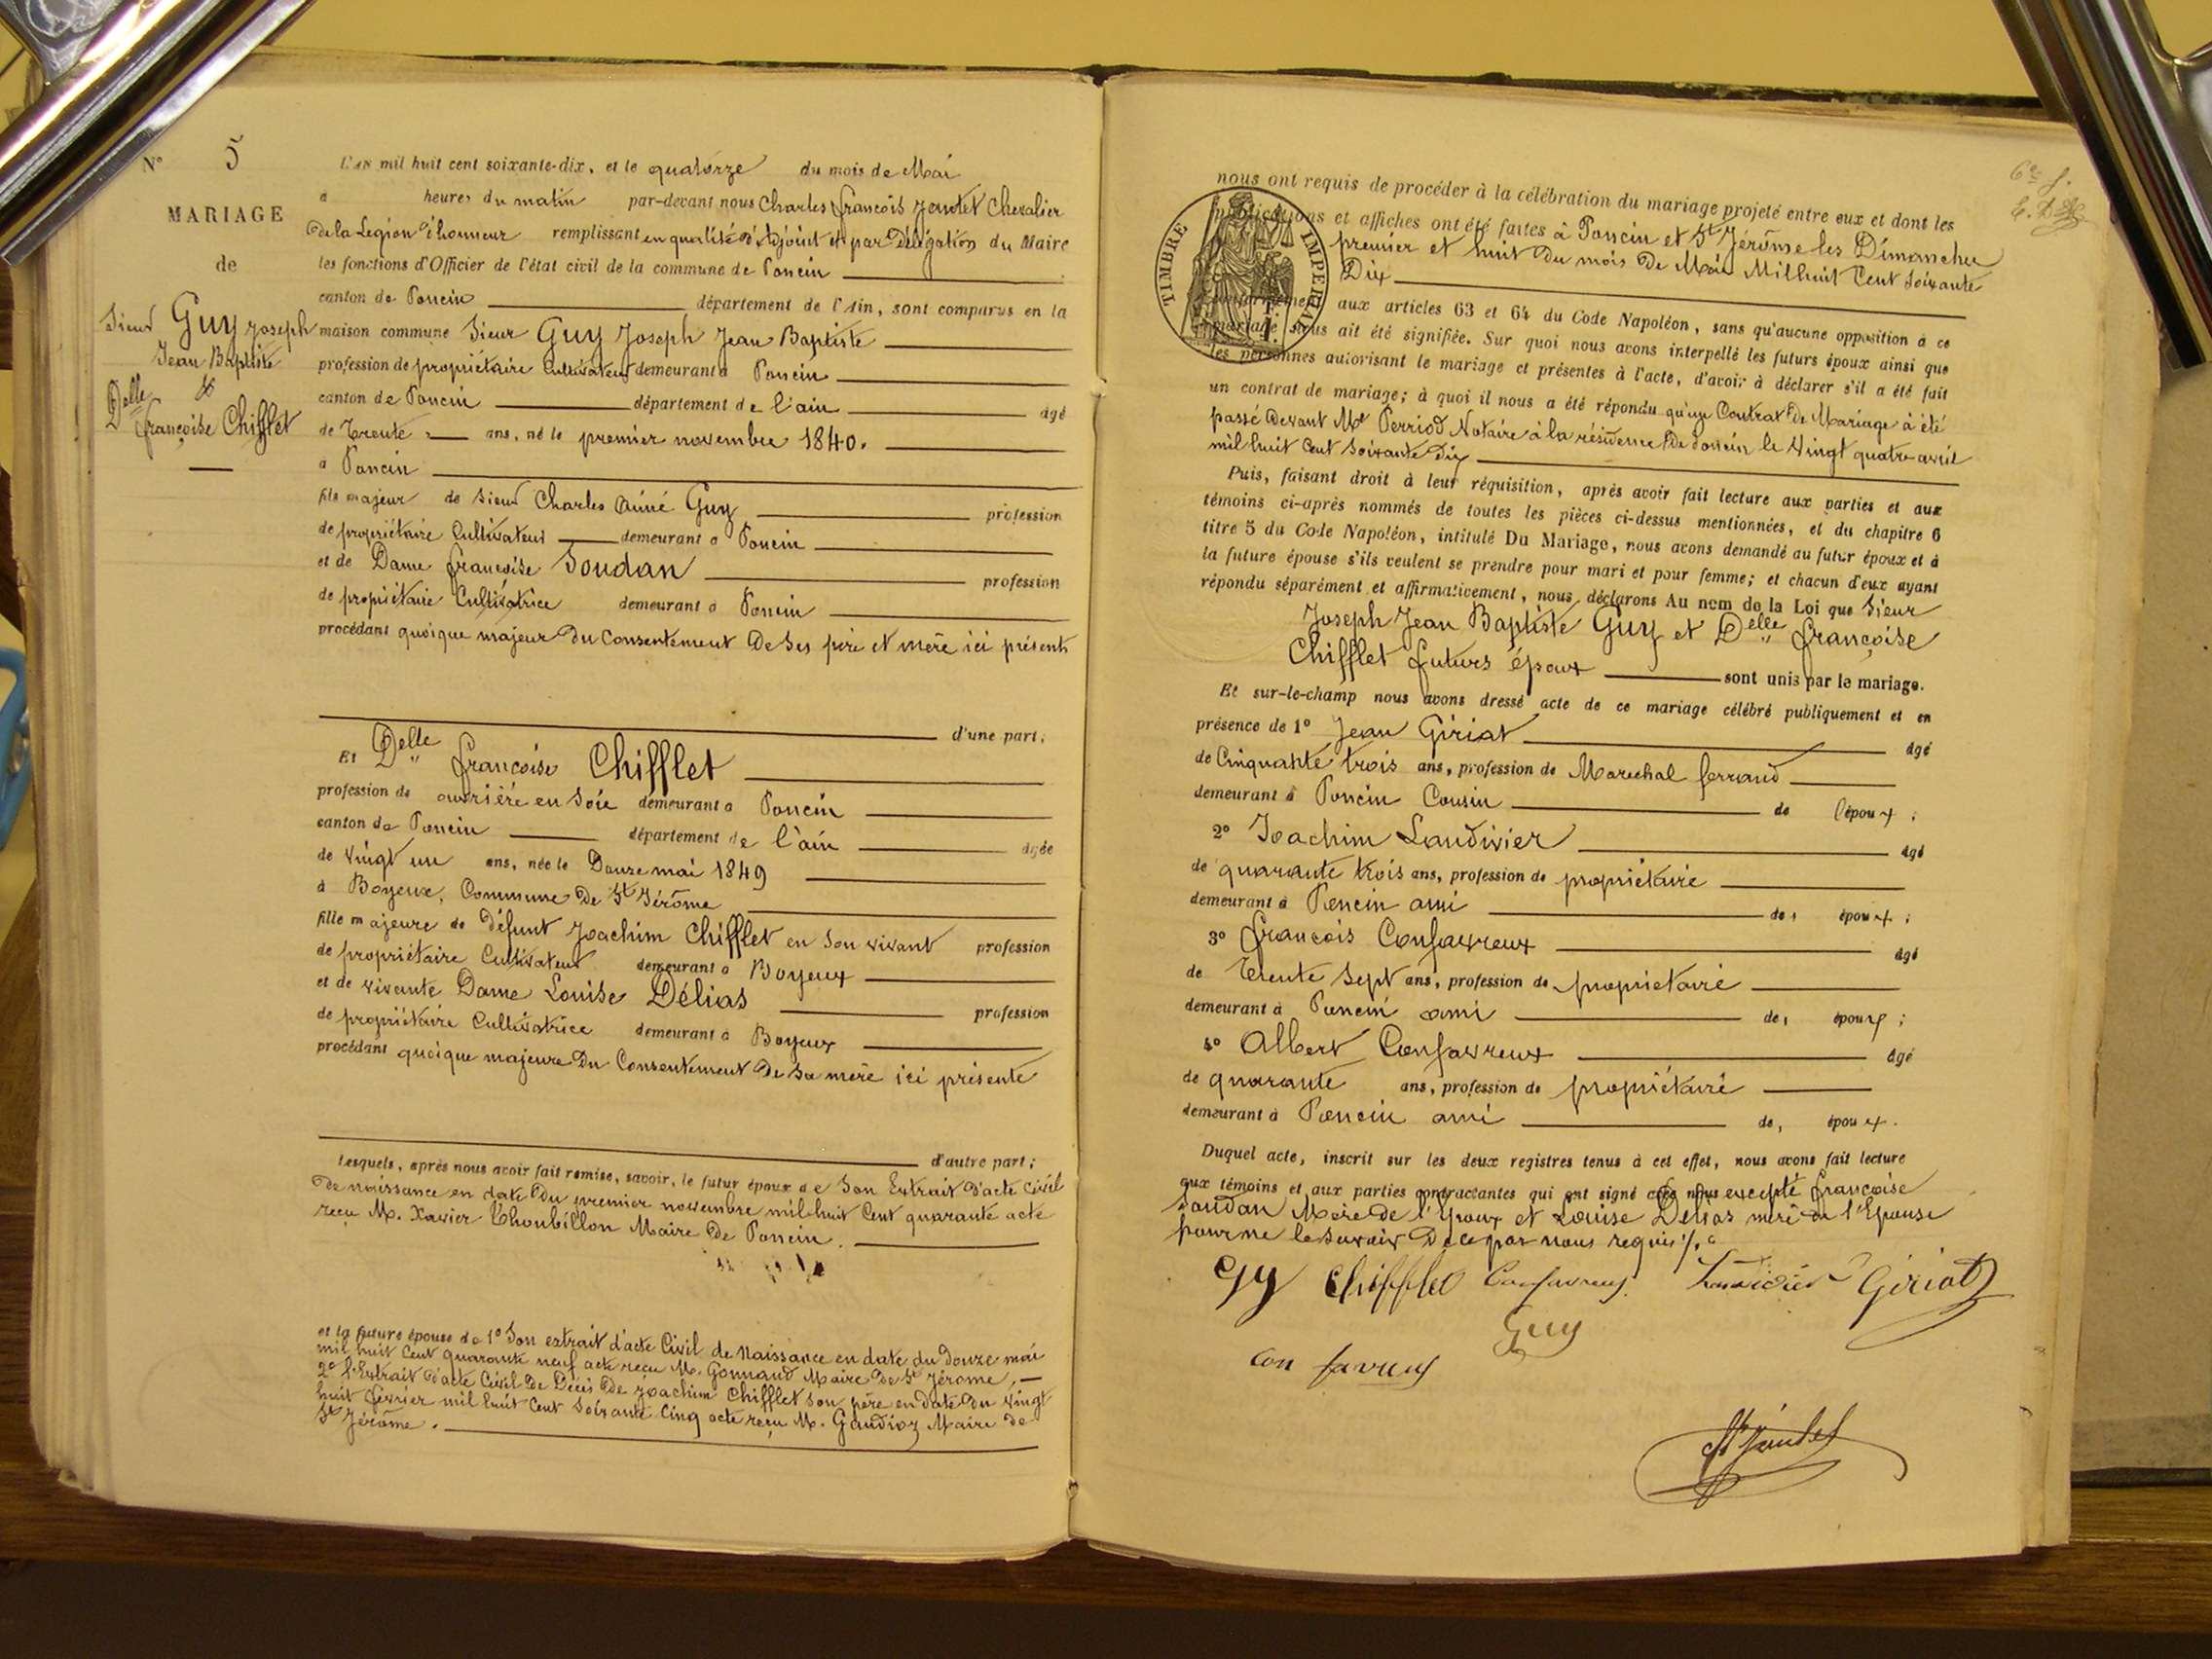 N° 5
MARIAGE
de
Sieur Guy Joseph
Jean Baptiste
&
Delle
françoise Chifflet
L'an mil huit cent soixante-dix, et le quatorze du mois de Mai
à heures du matin par-devant nous Charles françois Chevalier
De la Légion d'honneur remplissant en qualité d'Adjoint et par Délégation du Maire
les fonctions d'Officier de l'état civil de la commune de Poncin
canton de Poncin département de l'Ain, sont comparus en la
maison commune Sieur Guy Joseph Jean Baptiste
profession de propriétaire Cultivateur demeurant à Poncin
canton de Poncin département de l'ain âgé
de Trente ans, né le premier novembre 1840.
à Poncin
fils majeur de Sieur Charles Aimé Guy profession
de propriétaire Cultivateur demeurant à Poncin
et de Dame françoise Soudan profession
de propriétaire Cultivatrice demeurant à Poncin
procédant quoique majeur Du Consentement De Ses père et mère ici présents
d'une part.
Et Delle françoise Chifflet
profession de ouvrière en Soie demeurant à Poncin
canton de Poncin département de l'ain âgée
de Vingt un ans, née le Douze mai 1849
à Boyeux, Commune De St Jérôme
fille majeure de défunt Joachim Chifflet en Son vivant profession
de propriétaire Cultivateur demeurant à Boyeux
et de vivante Dame Louise Délias profession
de propriétaire Cultivatrice demeurant à Boyeux
procédant quoique majeure Du Consentement De Sa mère ici présente
d'autre part;
Lesquels, après nous avoir fait remise, savoir, le futur époux de Son Extrait d'acte Civil
De naissance en date Du premier novembre mil huit Cent quarante acte
reçu M. Xavier Thoubillon Maire De Poncin.
et la future épouse de 1° Son extrait d'acte Civil de Naissance en date du Douze mai
mil huit Cent quarante neuf acte reçu M. Gonnaud Maire De St Jérome,
2° l'Extrait d'acte Civil De Décès De Joachim Chifflet Son père en Date Du Vingt
huit février mil huit Cent Soixante Cinq acte reçu M. Gaudioz Maire de
St Jérôme.
nous ont requis de procéder à la célébration du mariage projeté entre eux et dont les
publications et affiches ont été faites à Poncin et St Jérôme les Dimanches
premier et huit Du mois De Mai Mil huit Cent Soixante
Dix
TIMBRE IMPERIAL
conformément aux articles 63 et 64 du Code Napoléon, sans qu'aucune opposition à ce
mariage nous ait été signifiée. Sur quoi nous avons interpellé les futurs époux ainsi que
les personnes autorisant le mariage et présentes à l'acte, d'avoir à déclarer s'il a été fait
un contrat de mariage; à quoi il nous a été répondu qu'un Contrat De Mariage à été
passé Devant Me Perriod Notaire à la résidence De Poncin le Vingt quatre avril
mil huit Cent Soixante Dix
Puis, faisant droit à leur réquisition, après avoir fait lecture aux parties et aux
témoins ci-après nommés de toutes les pièces ci-dessus mentionnées, et du chapitre 6
titre 5 du Code Napoléon, intitulé Du Mariage, nous avons demandé au futur époux et à
la future épouse s'ils veulent se prendre pour mari et pour femme; et chacun d'eux ayant
répondu séparément et affirmativement, nous déclarons Au nom de la Loi que Sieur
Joseph Jean Baptiste Guy et Delle françoise
Chifflet futurs époux sont unis par le mariage.
Et sur-le-champ nous avons dressé acte de ce mariage célébré publiquement et en
présence de 1° Jean Giriat âgé
de Cinquante trois ans, profession de Marechal ferrand
demeurant à Poncin Cousin de l'époux;
2° Joachim Landivier âgé
de quarante trois ans, profession de propriétaire
demeurant à Poncin ami des époux;
3° françois Confavreux âgé
de Trente Sept ans, profession de proprietaire
demeurant à Poncin ami des époux;
4° Albert Confavreux âgé
de quarante ans, profession de propriétaire
demeurant à Poncin ami des époux.
Duquel acte, inscrit sur les deux registres tenus à cet effet, nous avons fait lecture
aux témoins et aux parties contractantes qui ont signé avec nous excepté françoise
Soudan Mère De l'Epoux et Louise Délias mère de l'Epouse
pour ne le Savoir De ce par nous requis
Gy Chifflet Confavreux Landivier Giriat
Guy
Con favreux